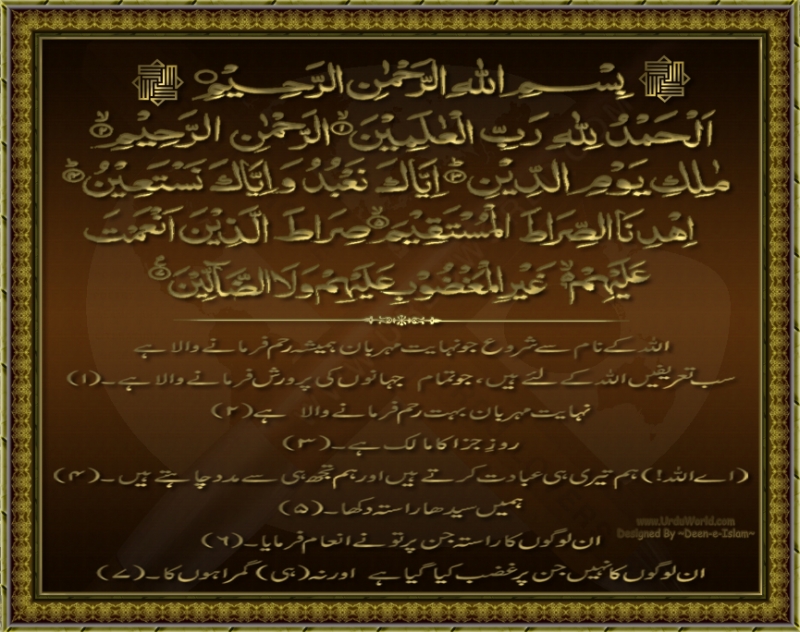 بِسْمِ اللهِ الرَّحْمٰنِ الرَّحِيْمِ
اَلْحَمْدُ لِلّٰهِ رَبِّ الْعٰلَمِيْنَ ۙ﴿۱﴾ الرَّحْمٰنِ الرَّحِيْمِ ۙ﴿۲﴾
مٰلِكِ يَوْمِ الدِّيْنِ ؕ﴿۳﴾ اِيَّاكَ نَعْبُدُ وَ اِيَّاكَ نَسْتَعِيْنُ ؕ﴿۴﴾
اِهْدِنَا الصِّرَاطَ الْمُسْتَقِيْمَ ۙ﴿۵﴾ صِرَاطَ الَّذِيْنَ اَنْعَمْتَ
عَلَيْهِمْ ۙ﴿۶﴾ غَيْرِ الْمَغْضُوْبِ عَلَيْهِمْ وَلَا الضَّآلِّيْنَ ﴿۷﴾
اللہ کے نام سے شروع جو نہایت مہربان ہمیشہ رحم فرمانے والا ہے
سب تعریفیں اللہ کے لئے ہیں، جو تمام جہانوں کی پرورش فرمانے والا ہے۔(۱)
نہایت مہربان بہت رحم فرمانے والا ہے(۲)
روزِ جزا کا مالک ہے۔(۳)
(اے اللہ!) ہم تیری ہی عبادت کرتے ہیں اور ہم تجھ ہی سے مدد چاہتے ہیں۔(۴)
ہمیں سیدھا راستہ دکھا۔(۵)
ان لوگوں کا راستہ جن پر تو نے انعام فرمایا۔(۶)
ان لوگوں کا نہیں جن پر غضب کیا گیا ہے اور نہ (ہی) گمراہوں کا۔(۷)
www.UrduWorld.com
Designed By ~Deen-e-Islam~